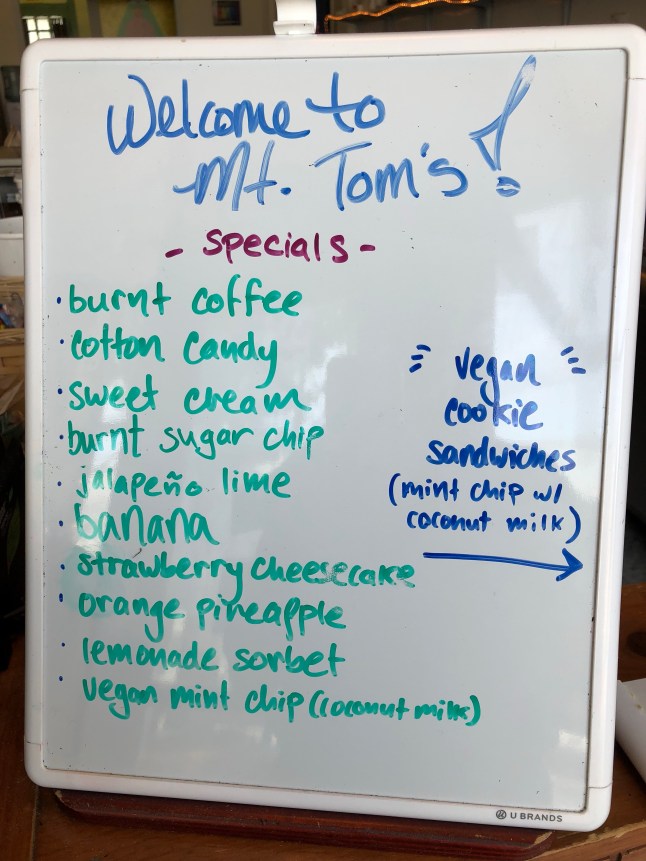 Welcome to
Mt. Tom's!
- Specials -
• burnt coffee
• cotton candy
• sweet cream
• burnt sugar chip
• jalapeño lime
• banana
• strawberry cheesecake
• orange pineapple
• lemonade sorbet
• vegan mint chip (coconut milk)
vegan
cookie
sandwiches
(mint chip w/
coconut milk)
U BRANDS